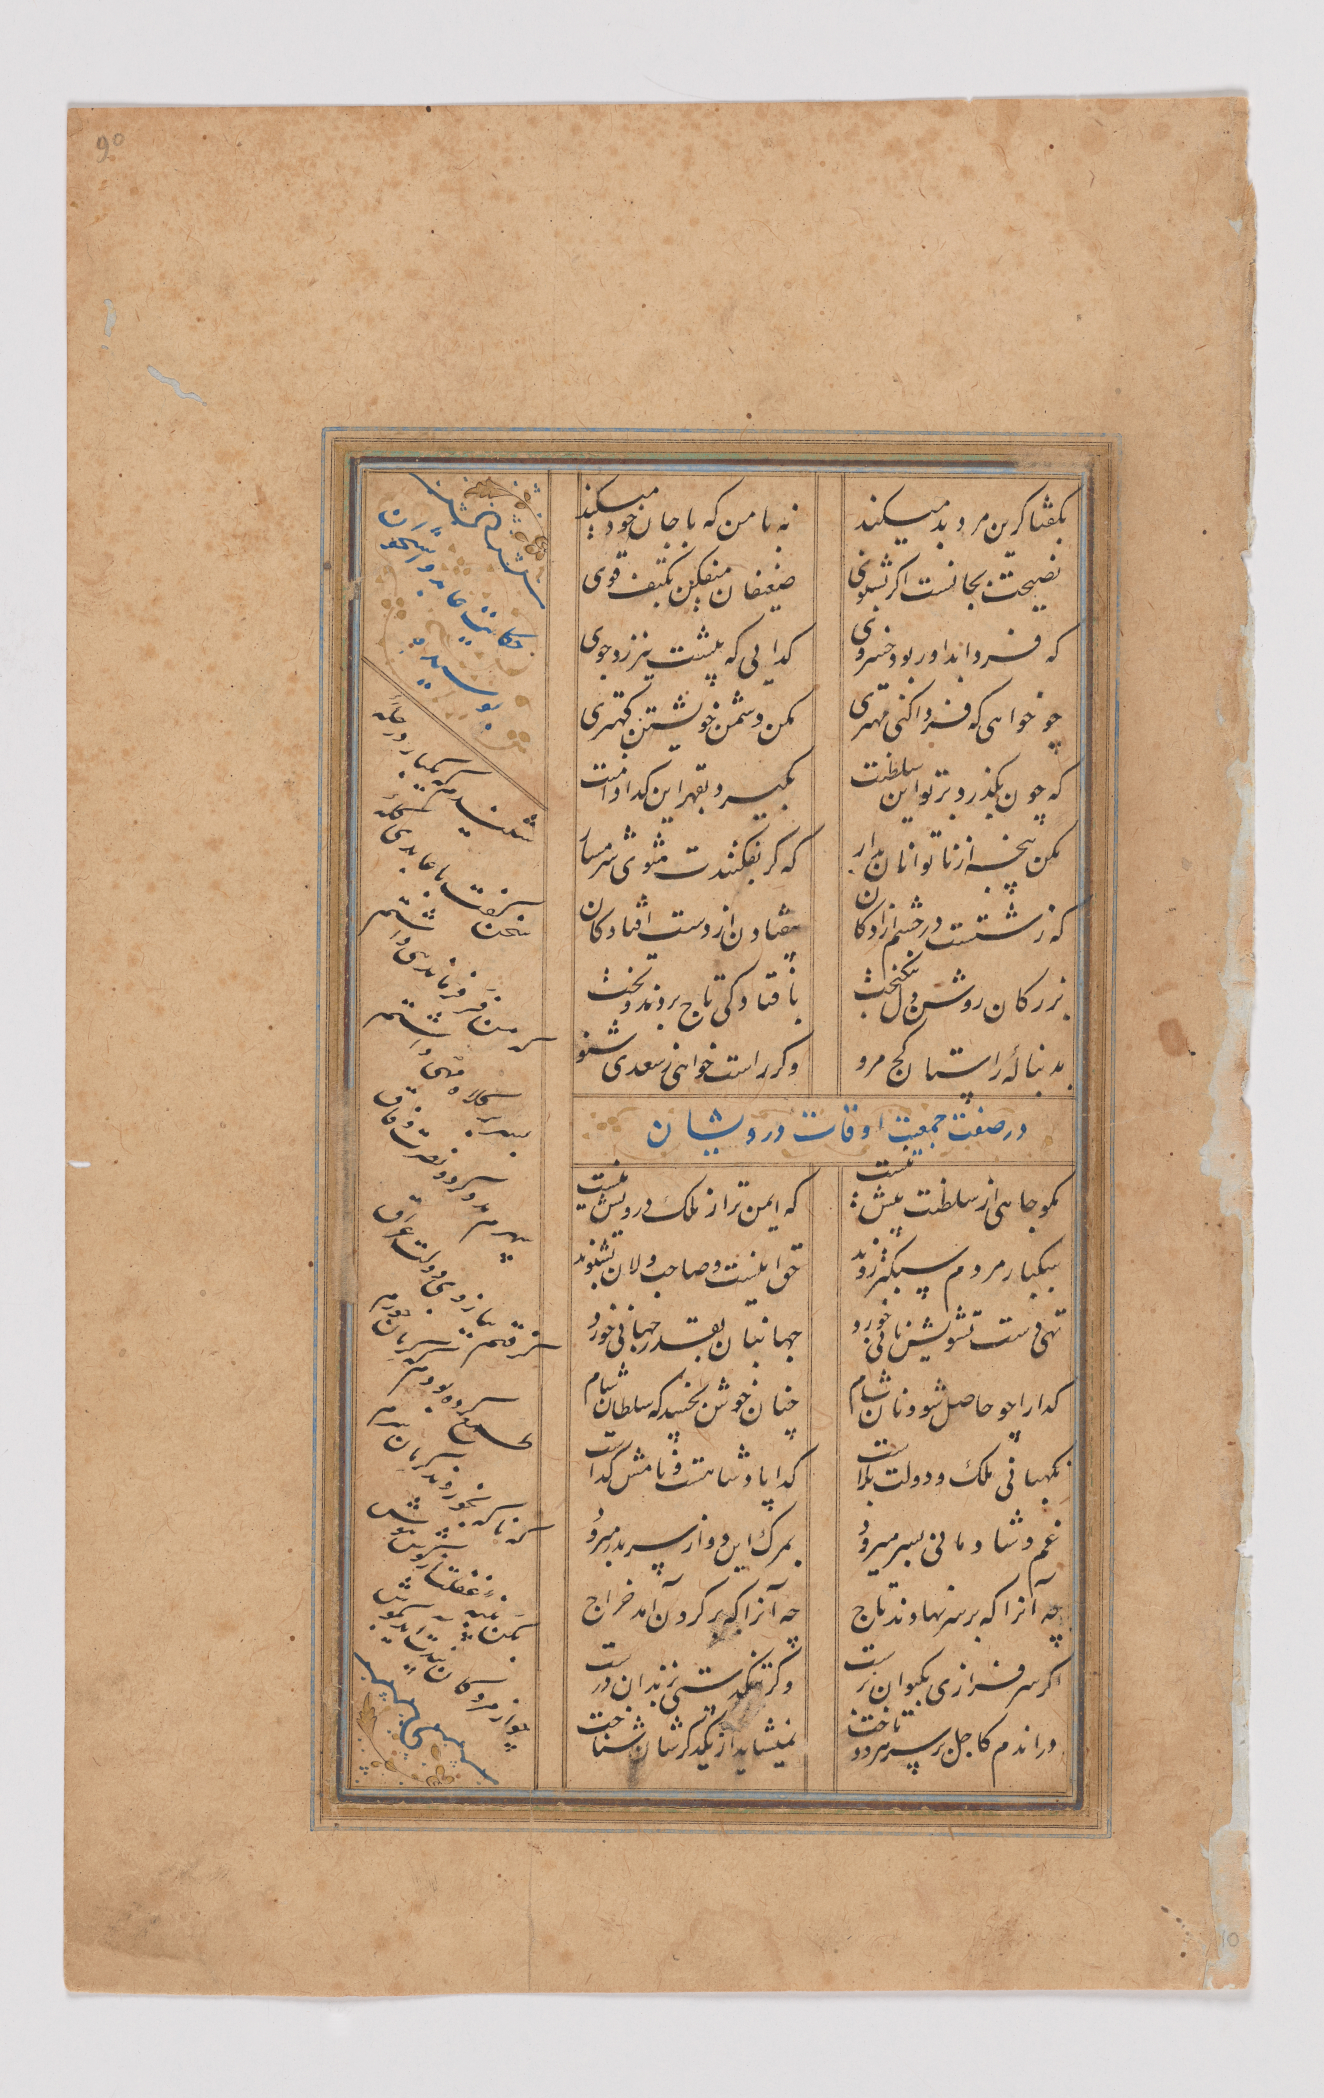 بکفتا کرین مرد بد میکند
نه با من که با جان خود میکند
نصیحت بجانست اکر بشنوی
ضعیفان میفکن بکتف قوی
که فردا بداور بود خسروی
کدایی که پیشت نیرزد جوی
چو خواهی که فردا کنی مهتری
مکن دشمن خویشتن کهتری
که چون بکذرد بر تو این سلطنت
بکیرد بقهر این کدا دامنت
مکن پنجه از ناتوانان بدار
که کر بفکنندت شوی شرمسار
که زشتست در چشم ازادکان
بیفتادن از دست افتادکان
بزرکان روشن دل نیکبخت
بافتادکی تاج بردند و تخت
بدنبالهٔ راستان کج مرو
وکر راست خواهی ز سعدی شنو
در صفت جمعیت اوقات درویشان
مکو جاهی از سلطنت بیش نیست
که ایمن تر از ملک درویش نیست
سبکبار مردم سبکتر روند
حق اینست و صاحب دلان بشنوند
تهی دست تشویش نانی خورد
جهانبان بقدر جهانی خورد
کدا را چو حاصل شود نان شام
چنان خوش بخسپد که سلطان شام
نکهبانی ملک و دولت بلاست
کدا پادشاهست و نامش کداست
غم و شادمانی بسر میرود
بمرک این دو از سر بدر میرود
چه آنرا که بر سر نهادند تاج
چه آنرا که بر کردن آمد خراج
اکر سرفرازی بکیوان برست
وکر تنکدستی بزندان درست
در اندم که اجل بر سر هر دو تاخت
نمیشاید از یکدکرشان شناخت
حکایت عابد و استخوان
پوسیده
شنیدم که یکبار در حلهٔ
سخن کفت با عابدی کلهٔ
که من فر فرماندهی داشتم
بسر بر کلاه مهی داشتم
سپهرم مدد کرد و نصرت وفاق
کرفتم ببازوی دولت عراق
طمع کرده بودم که کرمان خورم
که ناکه بخوردند کرمان سرم
بکن پنبهٔ غفلت از کوش هوش
که از مردکان پندت آید بکوش